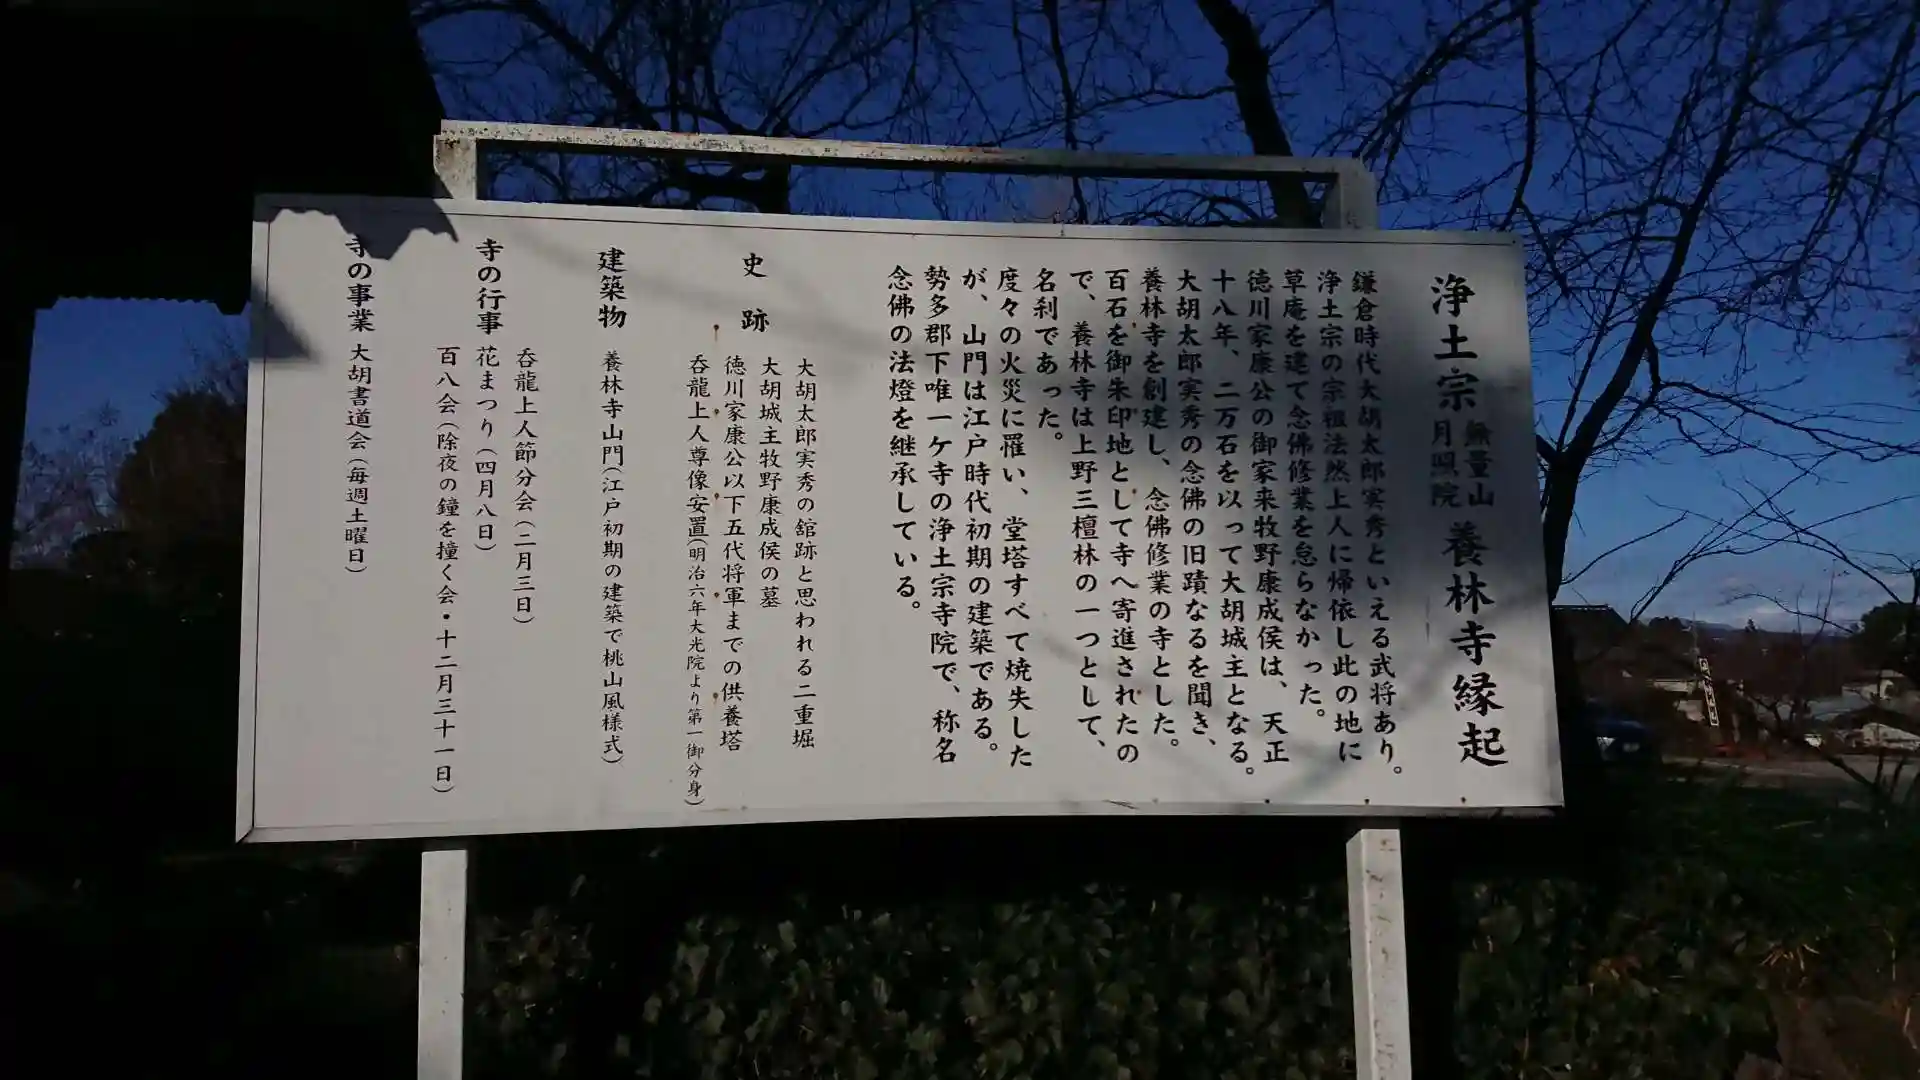 浄土宗 無量山 月照院 養林寺縁起
鎌倉時代大胡太郎実秀といえる武将あり。
浄土宗の宗祖法然上人に帰依し此の地に
草庵を建て念佛修業を怠らなかった。
徳川家康公の御家来牧野康成侯は、天正
十八年、二万石を以って大胡城主となる。
大胡太郎実秀の念佛の旧蹟なるを聞き、
養林寺を創建し、念佛修業の寺とした。
百石を御朱印地として寺へ寄進されたの
で、養林寺は上野三檀林の一つとして、
名刹であった。
度々の火災に罹い、堂塔すべて焼失した
が、山門は江戸時代初期の建築である。
勢多郡下唯一ケ寺の浄土宗寺院で、称名
念佛の法燈を継承している。
史跡
大胡太郎実秀の舘跡と思われる二重堀
大胡城主牧野康成侯の墓
徳川家康公以下五代将軍までの供養塔
呑龍上人尊像安置(明治六年大光院より第一御分身)
建築物 養林寺山門(江戸初期の建築で桃山風様式)
呑龍上人節分会(二月三日)
寺の行事 花まつり(四月八日)
百八会(除夜の鐘を撞く会・十二月三十一日)
寺の事業 大胡書道会(毎週土曜日)